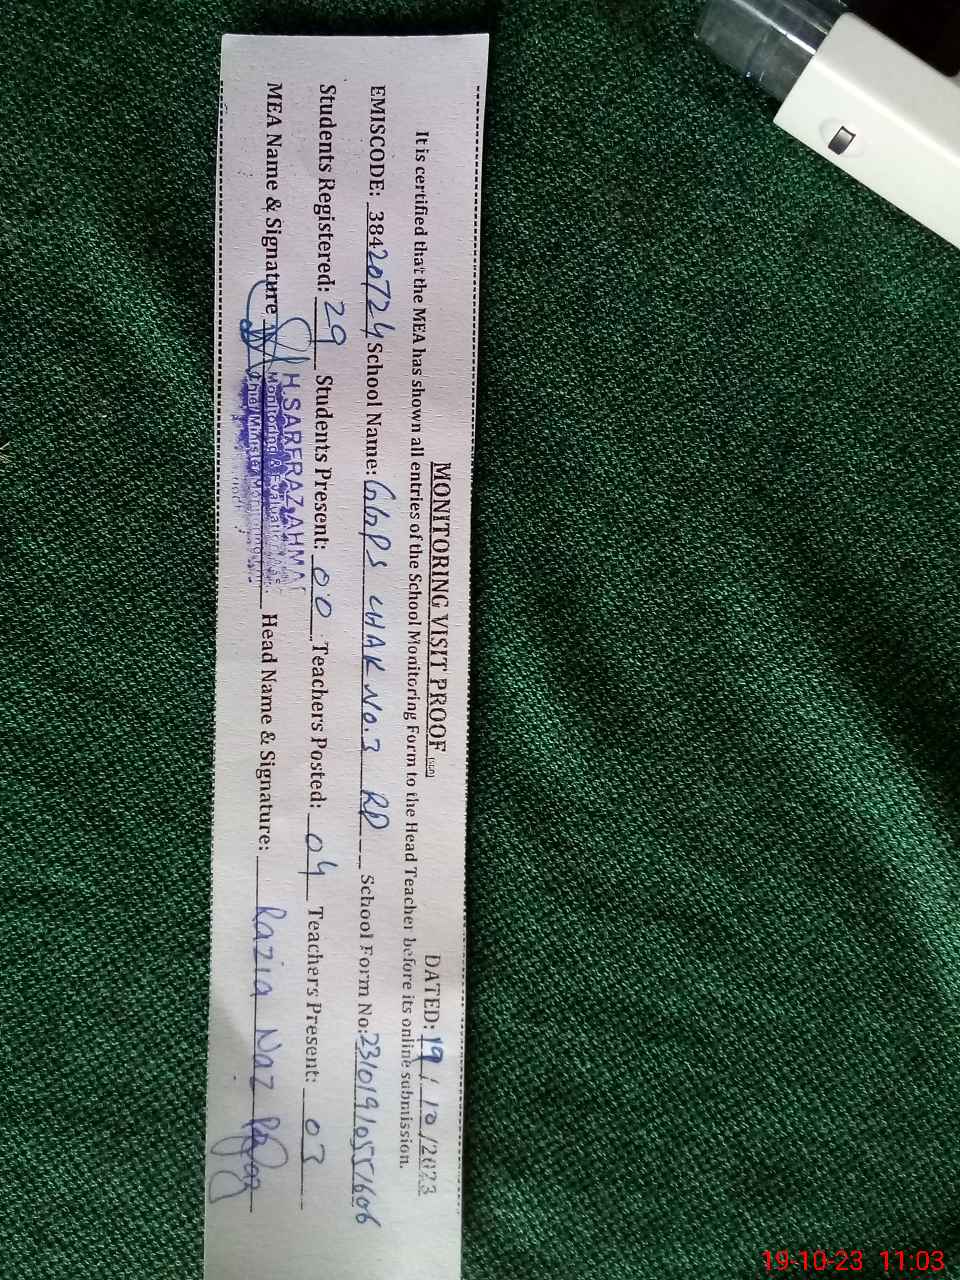 MONITORING VISIT PROOF DATED: 19 / 10 /2023
It is certified that the MEA has shown all entries of the School Monitoring Form to the Head Teacher before its online submission.
EMISCODE: 38420724 School Name: GGPS CHAK No.3 RD School Form No: 23101910551606
Students Registered: 29 Students Present: 00 Teachers Posted: 04 Teachers Present: 03
MEA Name & Signature Head Name & Signature: Razia Naz
H.SARFRAZ AHMA
Monitoring & Evaluation
19-10-23 11:03